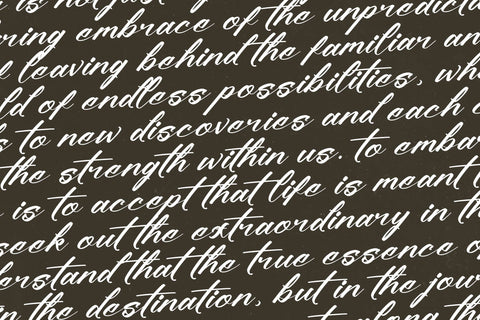 is not just
ring embrace of the unpredicta
leaving behind the familiar an
ld of endless possibilities, whe
s to new discoveries and each c
the strength within us. To embar
is to accept that life is meant t
seek out the extraordinary in th
erstand that the true essence o
in the destination, but in the jour
along the